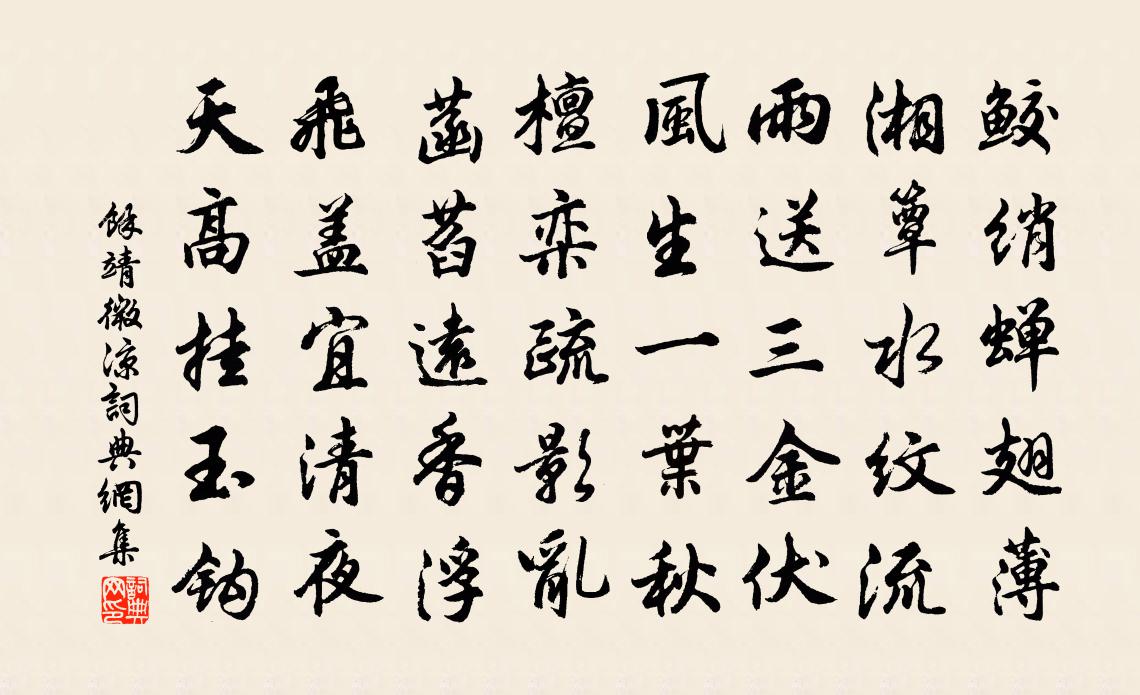 鲛绡蝉翅薄
湘簟水纹流
雨送三金伏
風生一葉秋
檀栾疏影亂
菡萏遠香浮
飛盖宜清夜
天高挂玉鈎
餘靖微涼詞典網集
詞典网印